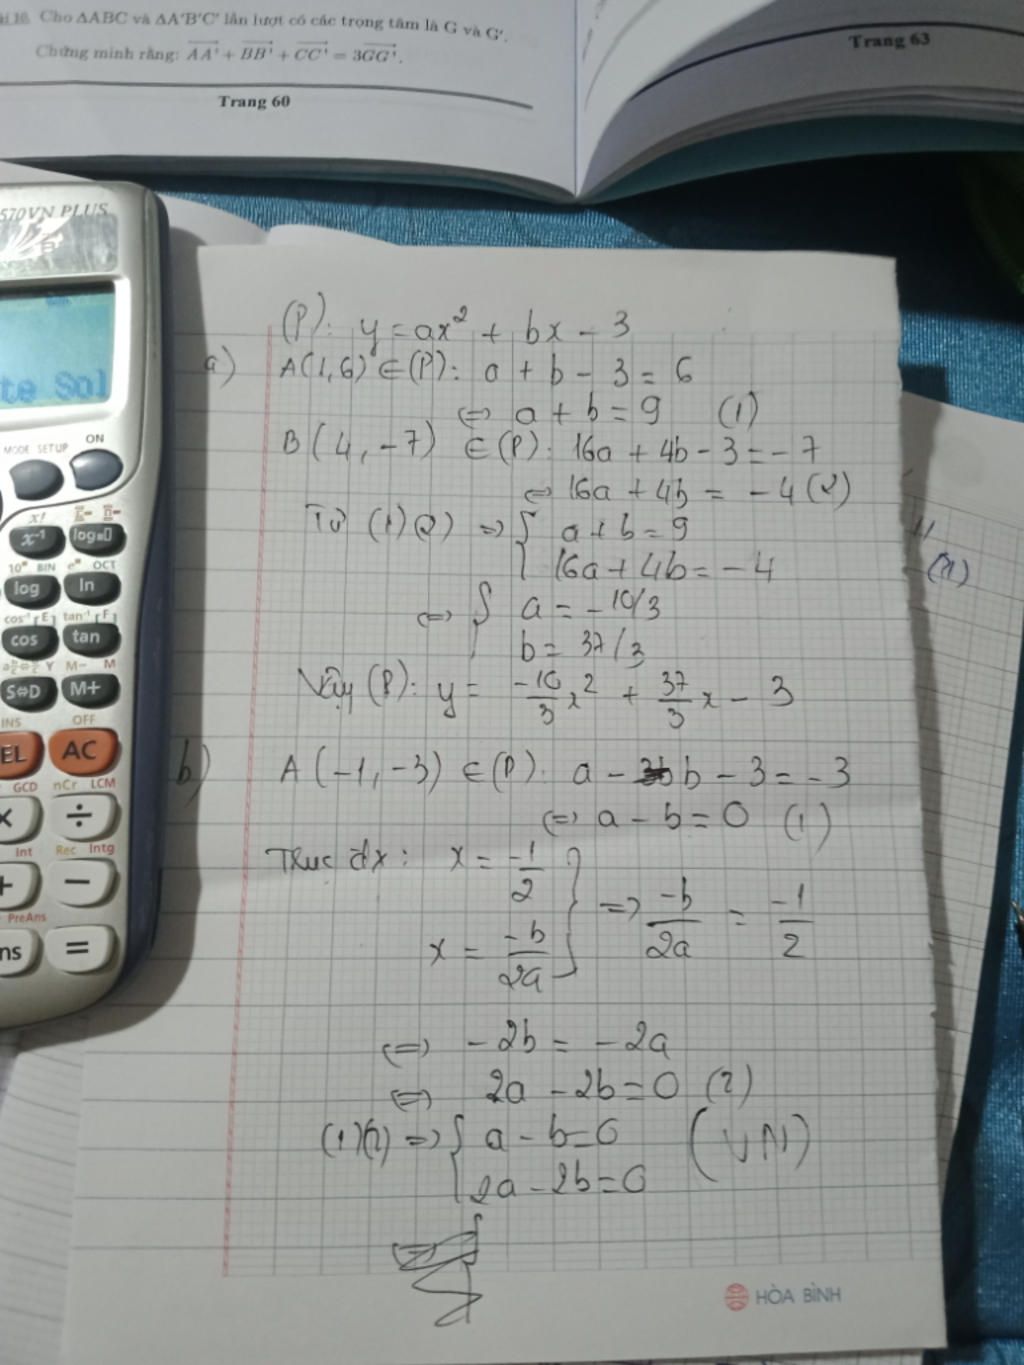 Cho ΔABC và ΔA'B'C' lần lượt có các trọng tâm là G và G'.
Chứng minh rằng: AA' + BB' + CC' = 3GG'.
Trang 60
Trang 63
570VN PLUS
te Sol
MODE SETUP ON
x!
x⁻¹ log
BIN OCT
log ln
cos⁻¹ E tan⁻¹ F
cos tan
Y M− M
S⇔D M+
INS OFF
EL AC
GCD nCr LCM
× ÷
Int Rec Intg
+ −
PreAns
ns =
(P): y = ax² + bx - 3
a) A(1,6) ∈ (P): a + b - 3 = 6
⇔ a + b = 9 (1)
B(4, -7) ∈ (P): 16a + 4b - 3 = -7
⇔ 16a + 4b = -4 (2)
Từ (1)(2) ⇒ { a + b = 9
16a + 4b = -4
⇔ { a = -10/3
b = 37/3
Vậy (P): y = -10/3 x² + 37/3 x - 3
b) A(-1, -3) ∈ (P): a - b - 3 = -3
⇔ a - b = 0 (1)
Trục đx: x = -1/2
x = -b/2a } ⇒ -b/2a = -1/2
⇔ -2b = -2a
⇔ 2a - 2b = 0 (2)
(1)(2) ⇒ { a - b = 0 (VN)
2a - 2b = 0
(1)
HÒA BÌNH